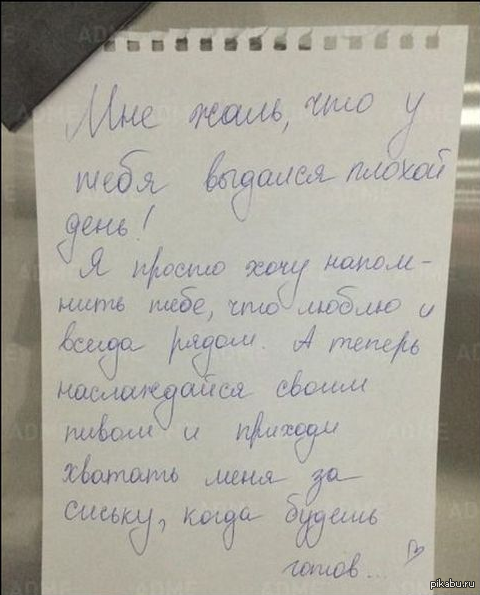 Мне жаль, что у
тебя выдался плохой
день!
Я просто хочу напом-
нить тебе, что люблю и
всегда рядом. А теперь
наслаждайся своим
пивом и приходи
хватать меня за
сиську, когда будешь
готов...
pikabu.ru